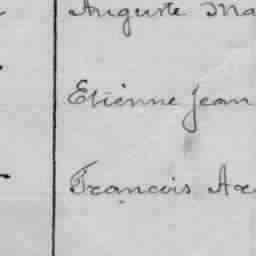 Auguste Ma
Etienne Jean
Francois